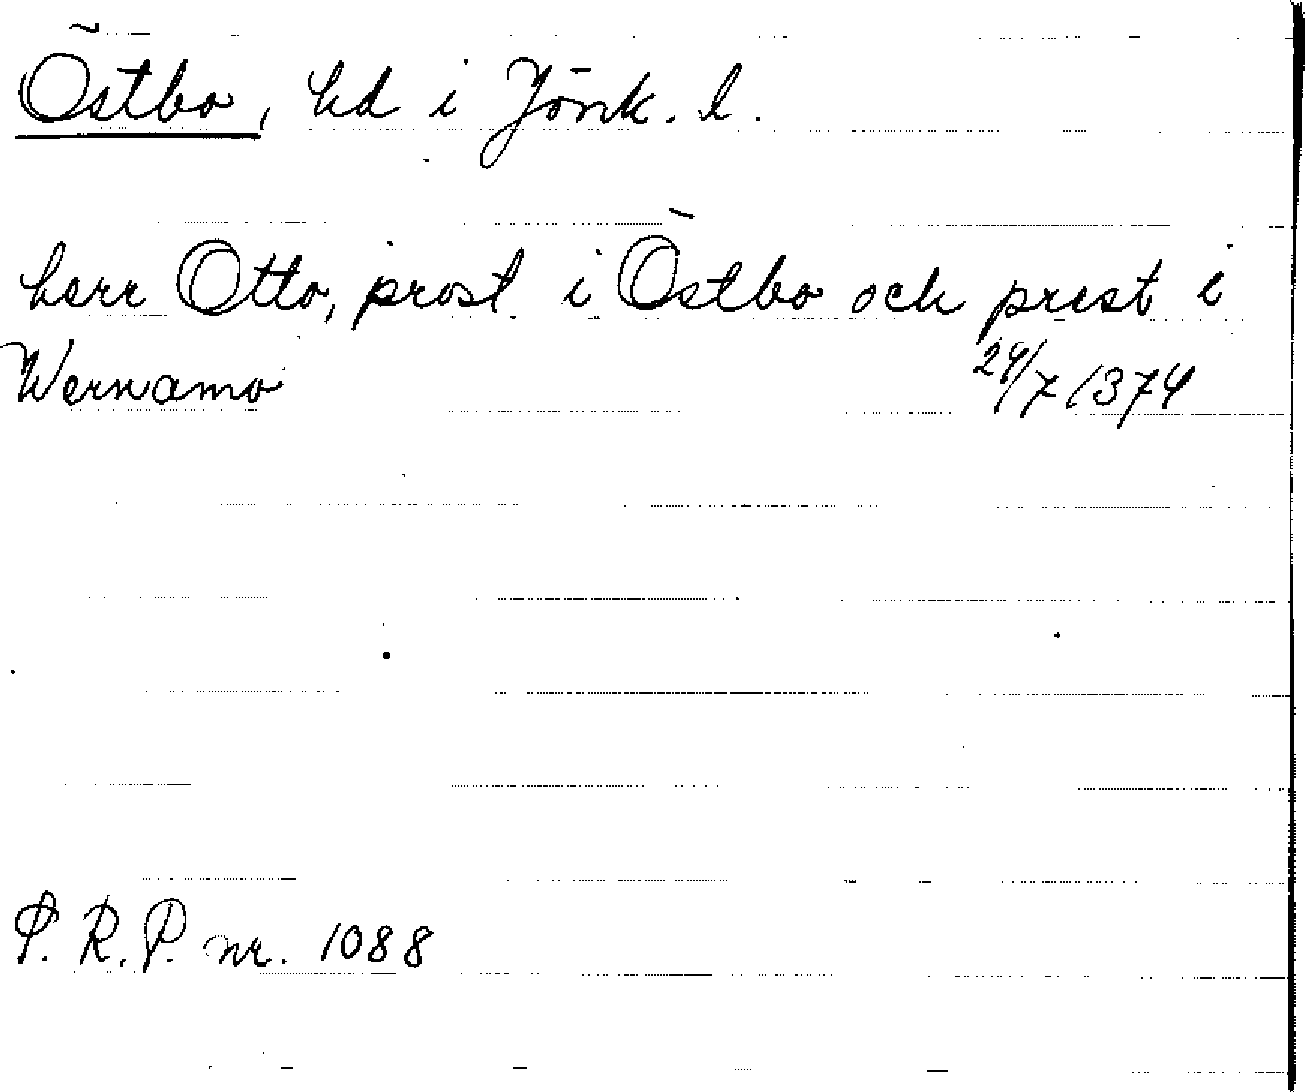 Östbo, hd i Jönk. l.
herr Otto, prost i Östbo och prest i
Wernamo 24/7 1374
P. R. P. nr. 1088